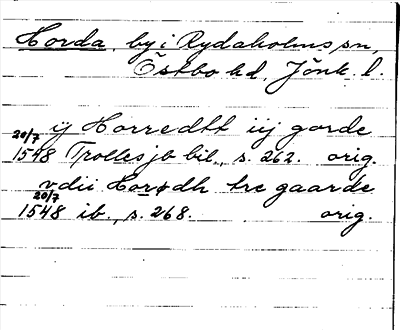 Horda, by i Rydaholms sn,
Östbo hd, Jönk. l.
ij Horredtt iij gorde
20/7 1548 Trolles jb bil., s. 262. orig.
vdii Horødh tre gaarde
20/7 1548 ib., s. 268. orig.